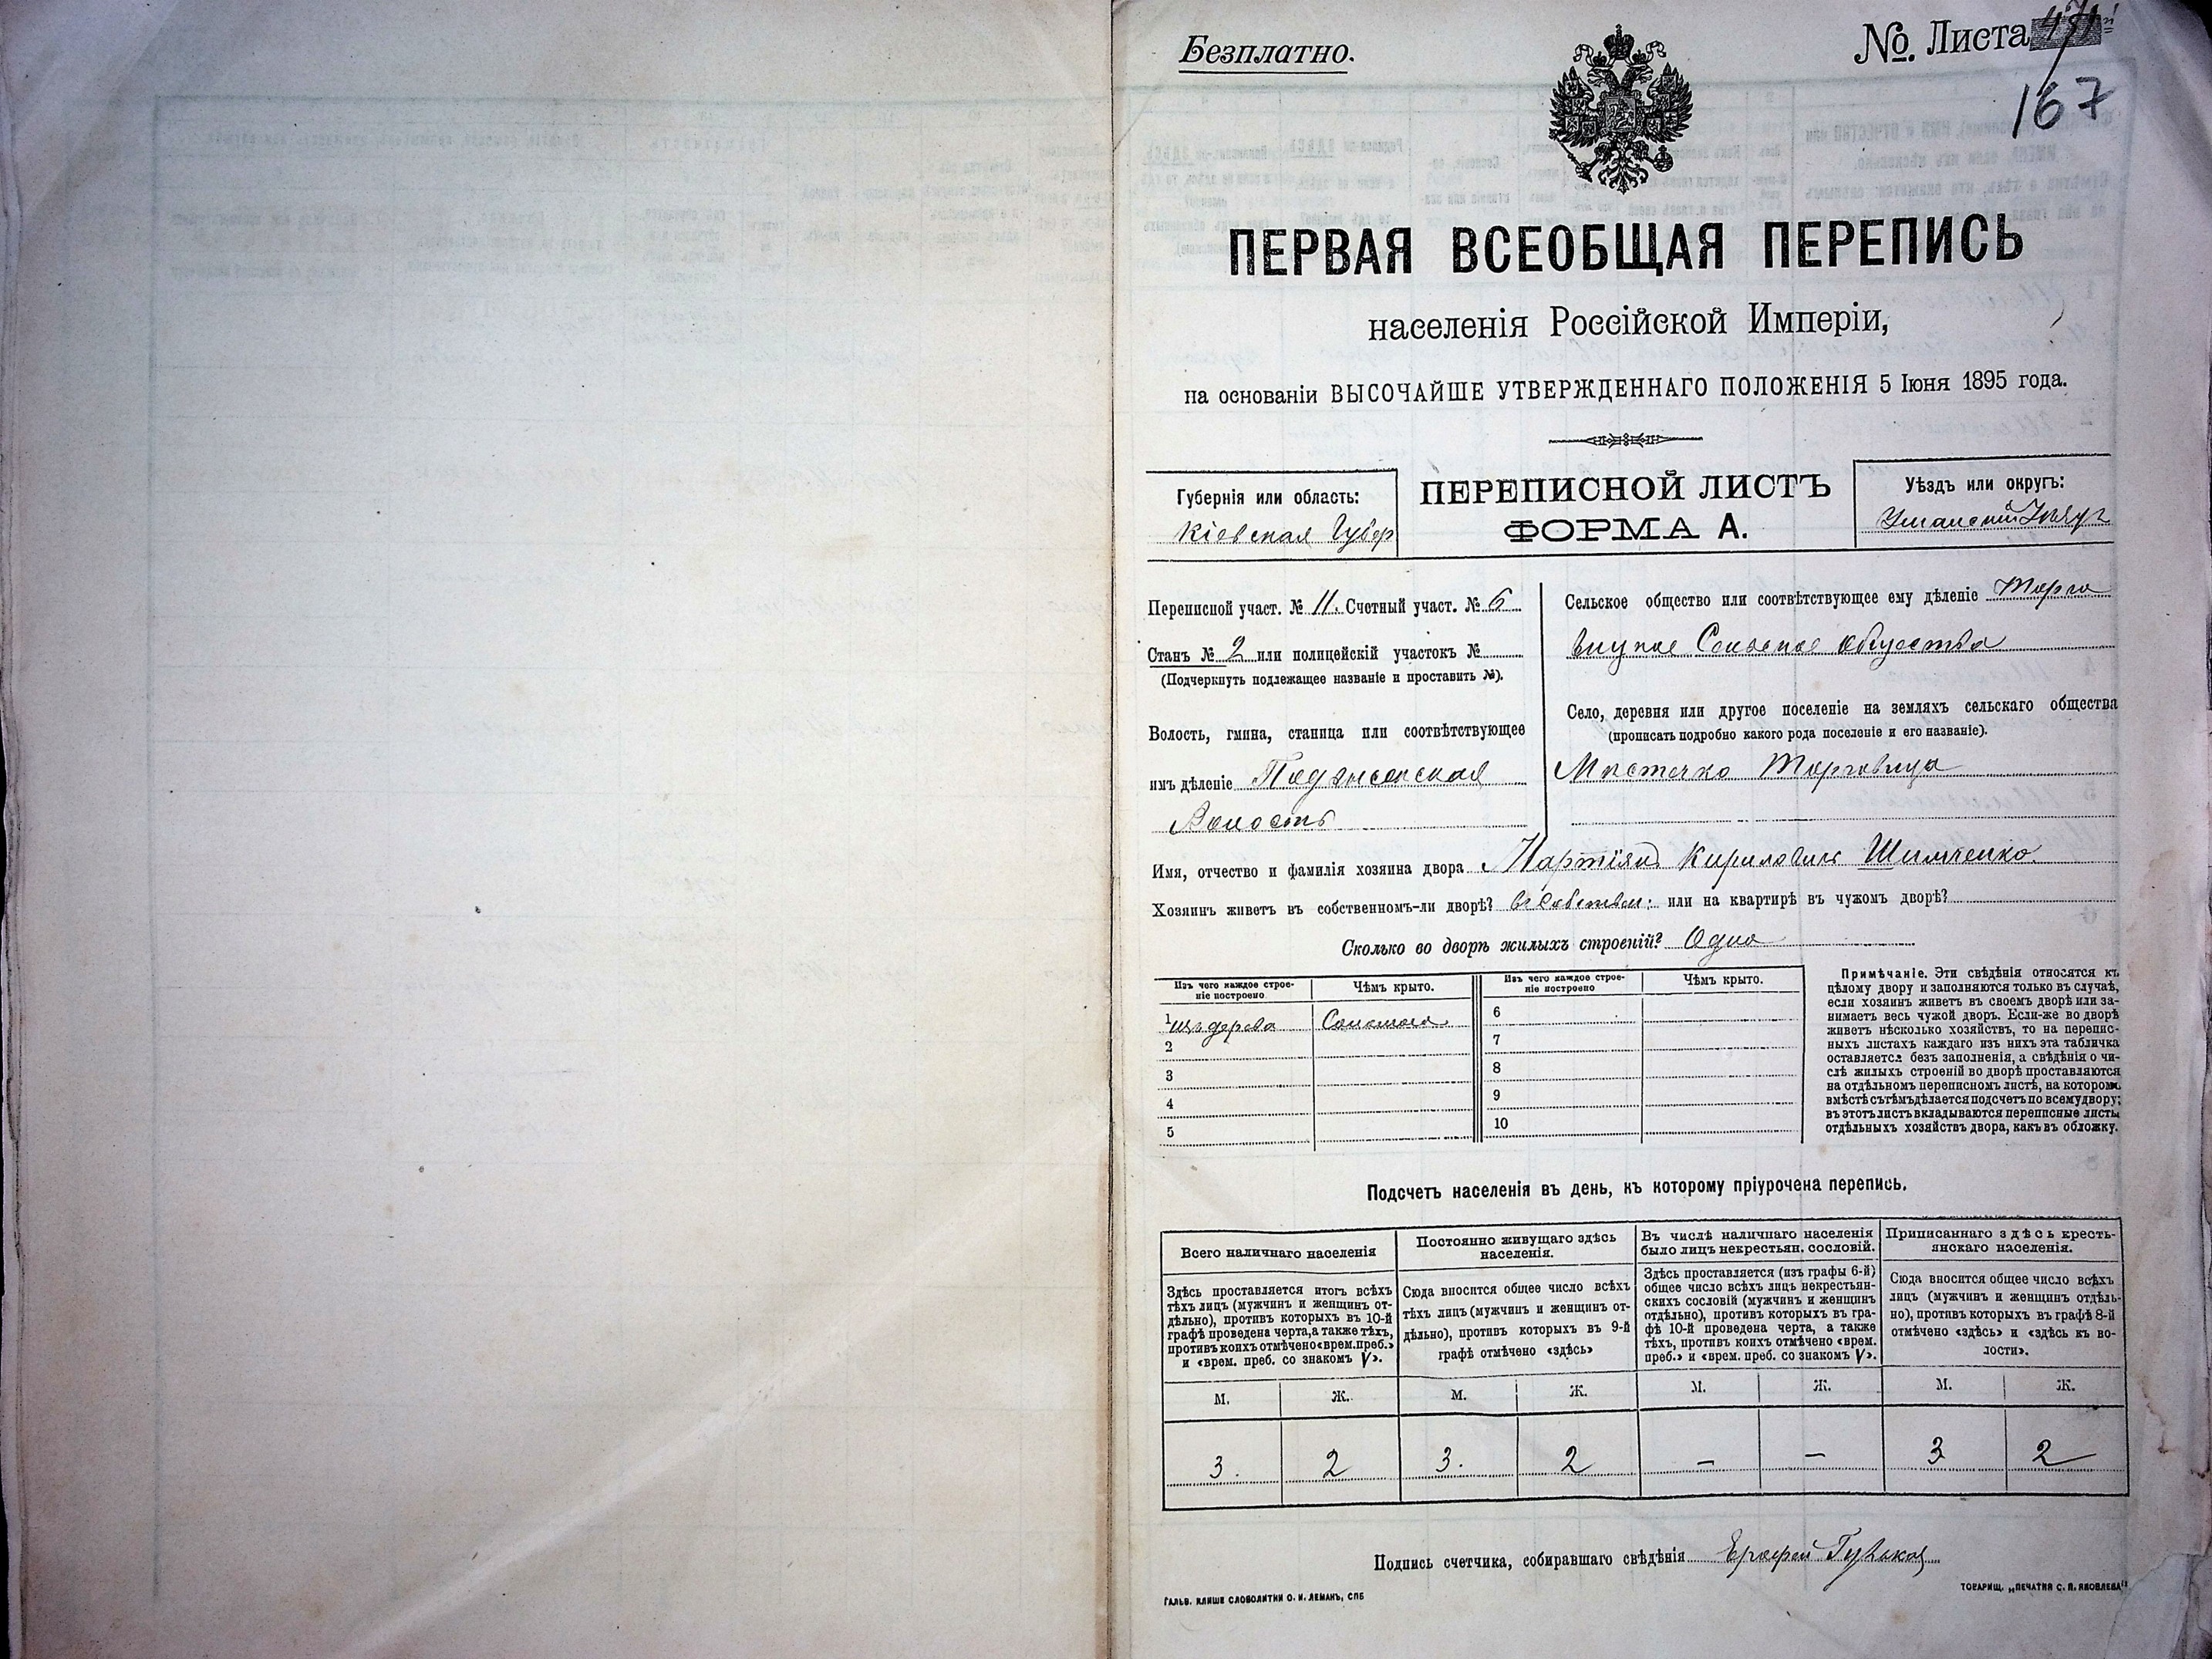 Безплатно.
№ Листа
167
ПЕРВАЯ ВСЕОБЩАЯ ПЕРЕПИСЬ
населенія Россійской Имперіи,
на основаніи ВЫСОЧАЙШЕ УТВЕРЖДЕННАГО ПОЛОЖЕНІЯ 5 Іюня 1895 года.
Губернія или область:
Кіевская Губер
ПЕРЕПИСНОЙ ЛИСТЪ
ФОРМА А.
Уѣздъ или округъ:
Уманскій Уѣздъ
Переписной участ. № 11. Счетный участ. № 6
Станъ № 2 или полицейскій участокъ №
(Подчеркнуть подлежащее названіе и проставить №).
Волость, гмина, станица или соотвѣтствующее
имъ дѣленіе Подвысоцкая
Волость
Сельское общество или соотвѣтствующее ему дѣленіе Торго
вицкое Сельское общество
Село, деревня или другое поселеніе на земляхъ сельскаго общества
(прописать подробно какого рода поселеніе и его названіе).
Мѣстечко Торговица
Имя, отчество и фамилія хозяина двора Партіян Кириловичъ Шимченко.
Хозяинъ живетъ въ собственномъ-ли дворѣ? въ собствен: или на квартирѣ въ чужомъ дворѣ?
Сколько во дворѣ жилыхъ строеній? Одна
Изъ чего каждое строе-
ніе построено
Чѣмъ крыто.
Изъ чего каждое строе-
ніе построено
Чѣмъ крыто.
1 изъ дерева Соломою
2
3
4
5
6
7
8
9
10
Примѣчаніе. Эти свѣдѣнія относятся къ
цѣлому двору и заполняются только въ случаѣ,
если хозяинъ живетъ въ своемъ дворѣ или за-
нимаетъ весь чужой дворъ. Если-же во дворѣ
живетъ нѣсколько хозяйствъ, то на перепис-
ныхъ листахъ каждаго изъ нихъ эта табличка
оставляется безъ заполненія, а свѣдѣнія о чи-
слѣ жилыхъ строеній во дворѣ проставляются
на отдѣльномъ переписномъ листѣ, на которомъ
вмѣстѣ съ тѣмъ дѣлается подсчетъ по всему двору;
въ этотъ листъ вкладываются переписные листы
отдѣльныхъ хозяйствъ двора, какъ въ обложку.
Подсчетъ населенія въ день, къ которому пріурочена перепись.
Всего наличнаго населенія
Здѣсь проставляется итогъ всѣхъ
тѣхъ лицъ (мужчинъ и женщинъ от-
дѣльно), противъ которыхъ въ 10-й
графѣ проведена черта, а также тѣхъ,
противъ коихъ отмѣчено «врем. преб.»
и «врем. преб. со знакомъ V».
Постоянно живущаго здѣсь
населенія.
Сюда вносится общее число всѣхъ
тѣхъ лицъ (мужчинъ и женщинъ от-
дѣльно), противъ которыхъ въ 9-й
графѣ отмѣчено «здѣсь»
Въ числѣ наличнаго населенія
было лицъ некрестьян. сословій.
Здѣсь проставляется (изъ графы 6-й)
общее число всѣхъ лицъ некрестьян-
скихъ сословій (мужчинъ и женщинъ
отдѣльно), противъ которыхъ въ гра-
фѣ 10-й проведена черта, а также
тѣхъ, противъ коихъ отмѣчено «врем.
преб.» и «врем. преб. со знакомъ V».
Приписаннаго здѣсь кресть-
янскаго населенія.
Сюда вносится общее число всѣхъ
лицъ (мужчинъ и женщинъ отдѣль-
но), противъ которыхъ въ графѣ 8-й
отмѣчено «здѣсь» и «здѣсь къ во-
лости».
М. Ж. М. Ж. М. Ж. М. Ж.
3. 2 3. 2 — — 3 2
Подпись счетчика, собиравшаго свѣдѣнія Ерофей
ГАЛЬВ. КЛИШЕ СЛОВОЛИТНИ О. И. ЛЕМАНЪ, СПБ
ТОВАРИЩ. „ПЕЧАТНЯ С. П. ЯКОВЛЕВА“